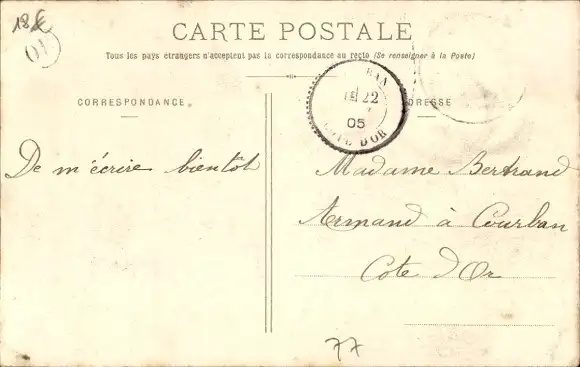 18€
CARTE POSTALE
Tous les pays étrangers n'acceptent pas la correspondance au recto (Se renseigner à la Poste)
CORRESPONDANCE
ADRESSE
BAN
22
05
COTE D'OR
De m'écrire bientot
Madame Bertrand
Armand à Courban
Cote d'Or
77